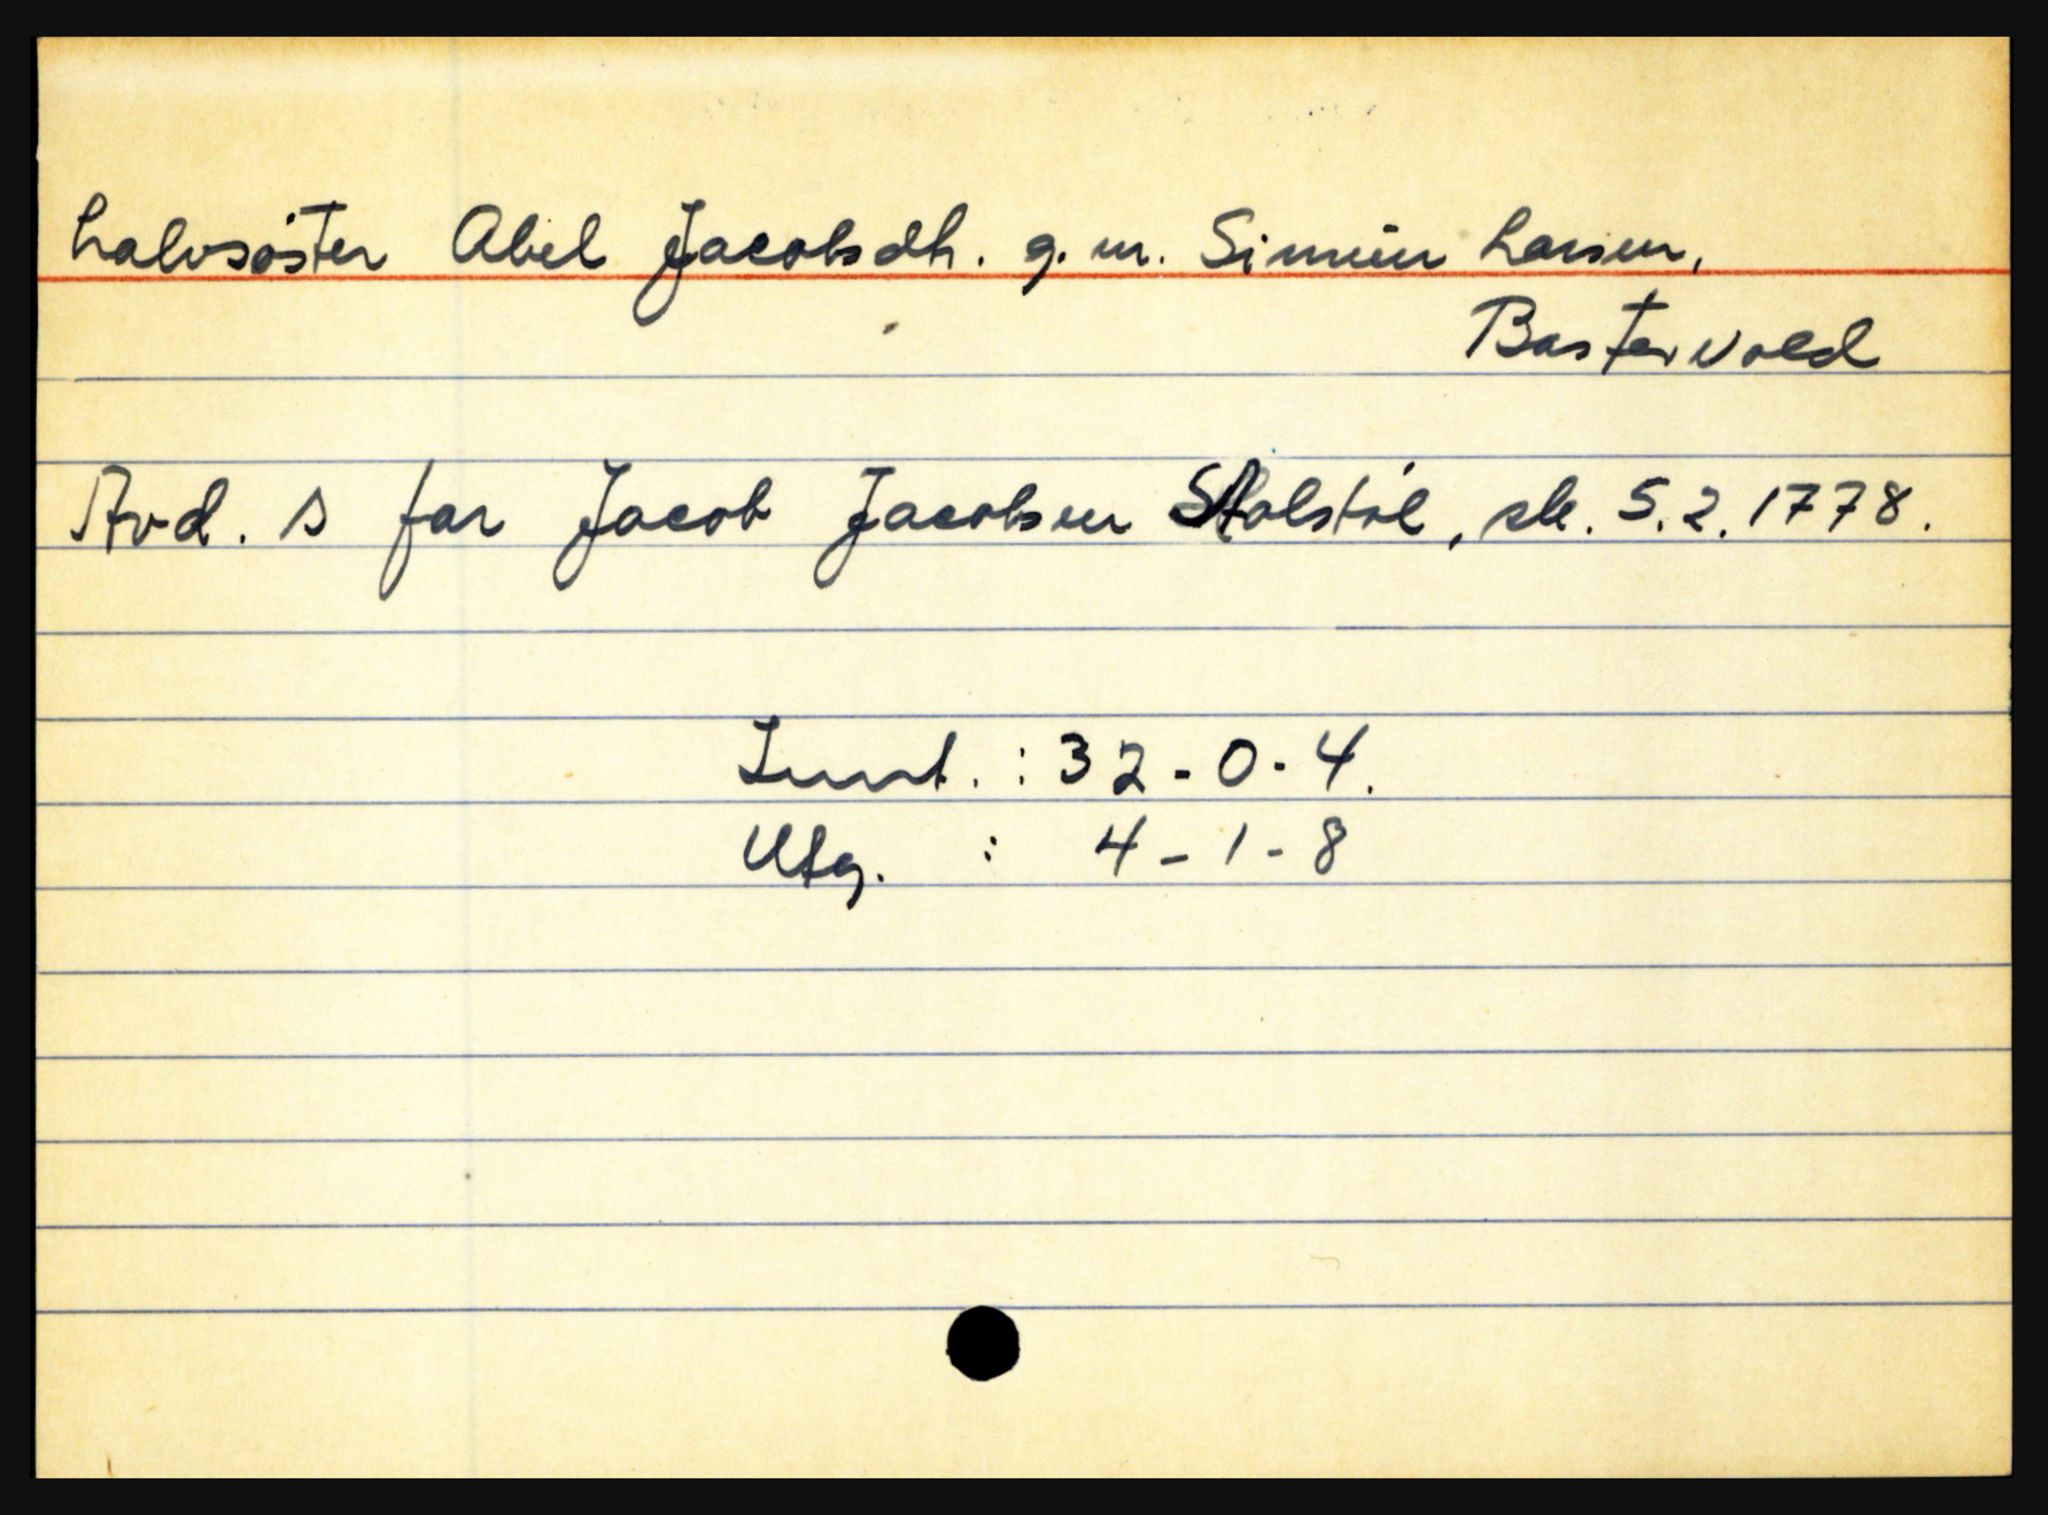 halvsöster Abel Jacobsdh. g. m. Simeon Larsen,
Bastervold
Avd. s far Jacob Jacobsen Stolstöl, sk. 5.2.1778.
Innt. : 32-0-4.
Utg. : 4-1-8